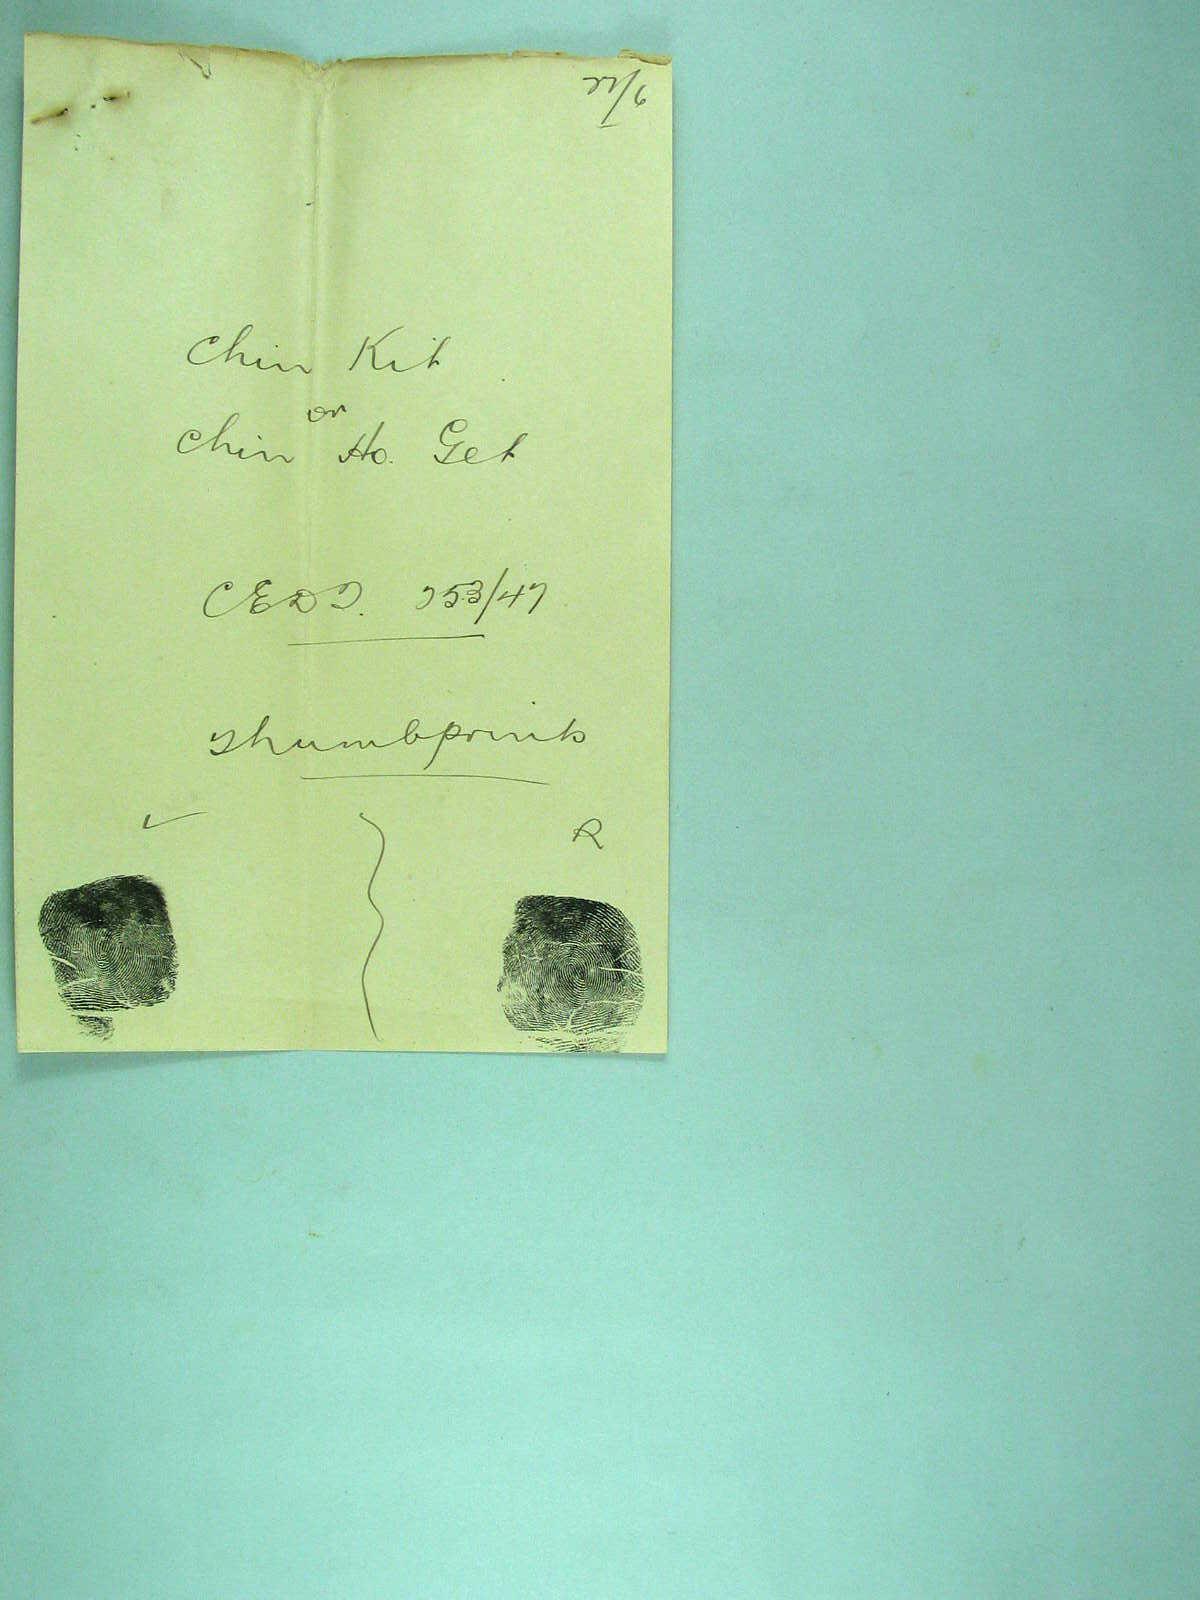 Chin Kit
or
Chin Ho Get
CEDT. 753/47
Thumbprints
L R